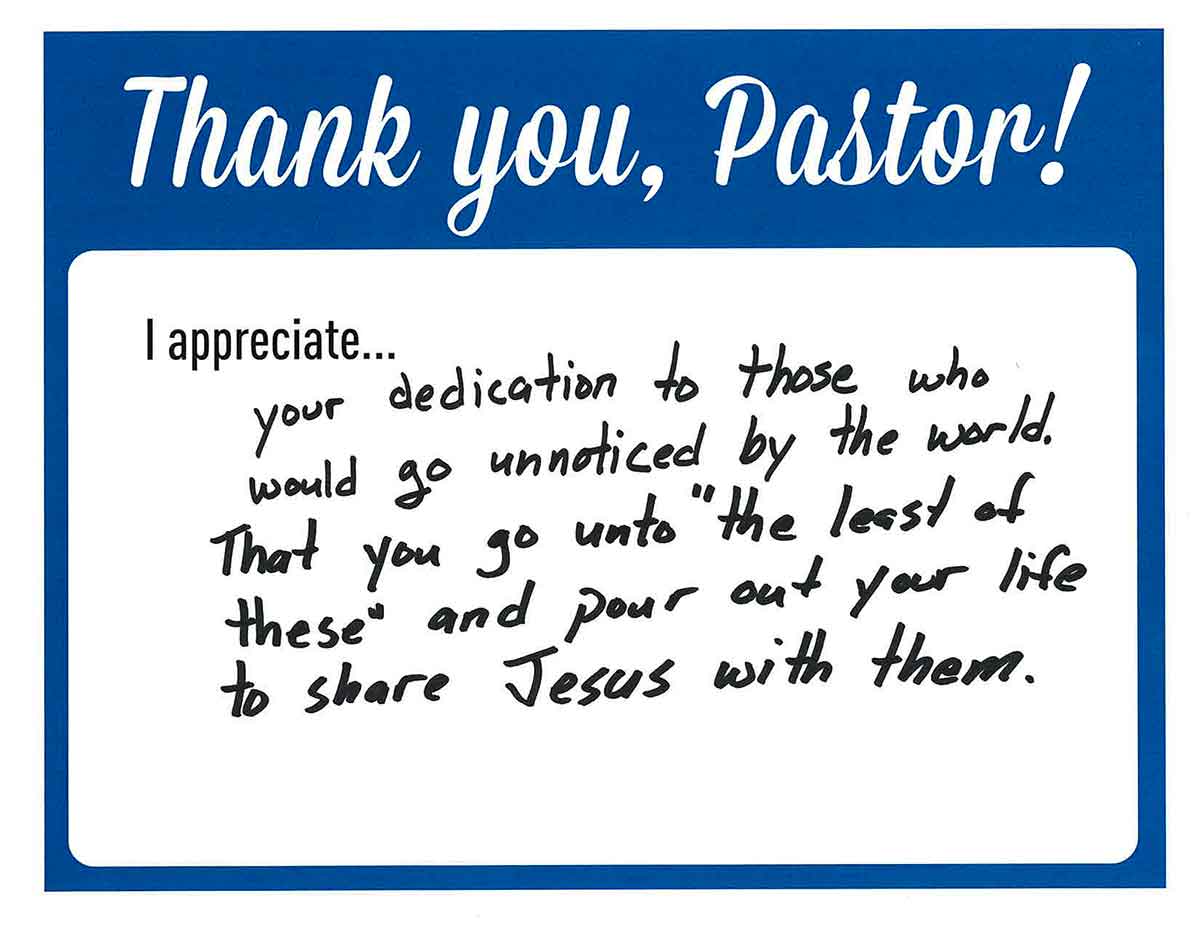 Thank you, Pastor!
I appreciate...
your dedication to those who
would go unnoticed by the world.
That you go unto "the least of
these" and pour out your life
to share Jesus with them.